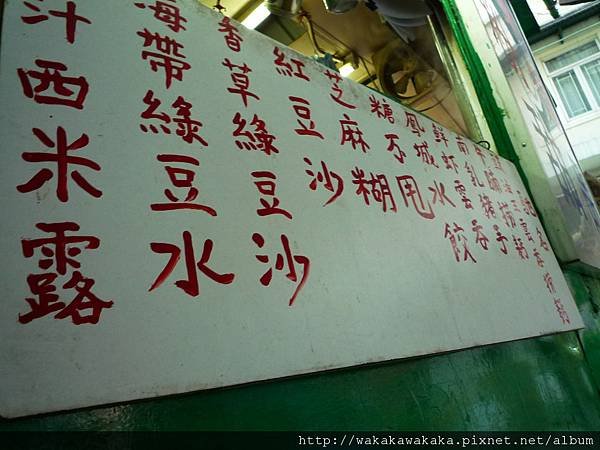 南乳豬手
鮮蝦雲吞
鳳城水餃
糖不甩
芝麻糊
紅豆沙
香草綠豆沙
海帶綠豆水
汁西米露
http://wakakawakaka.pixnet.net/album